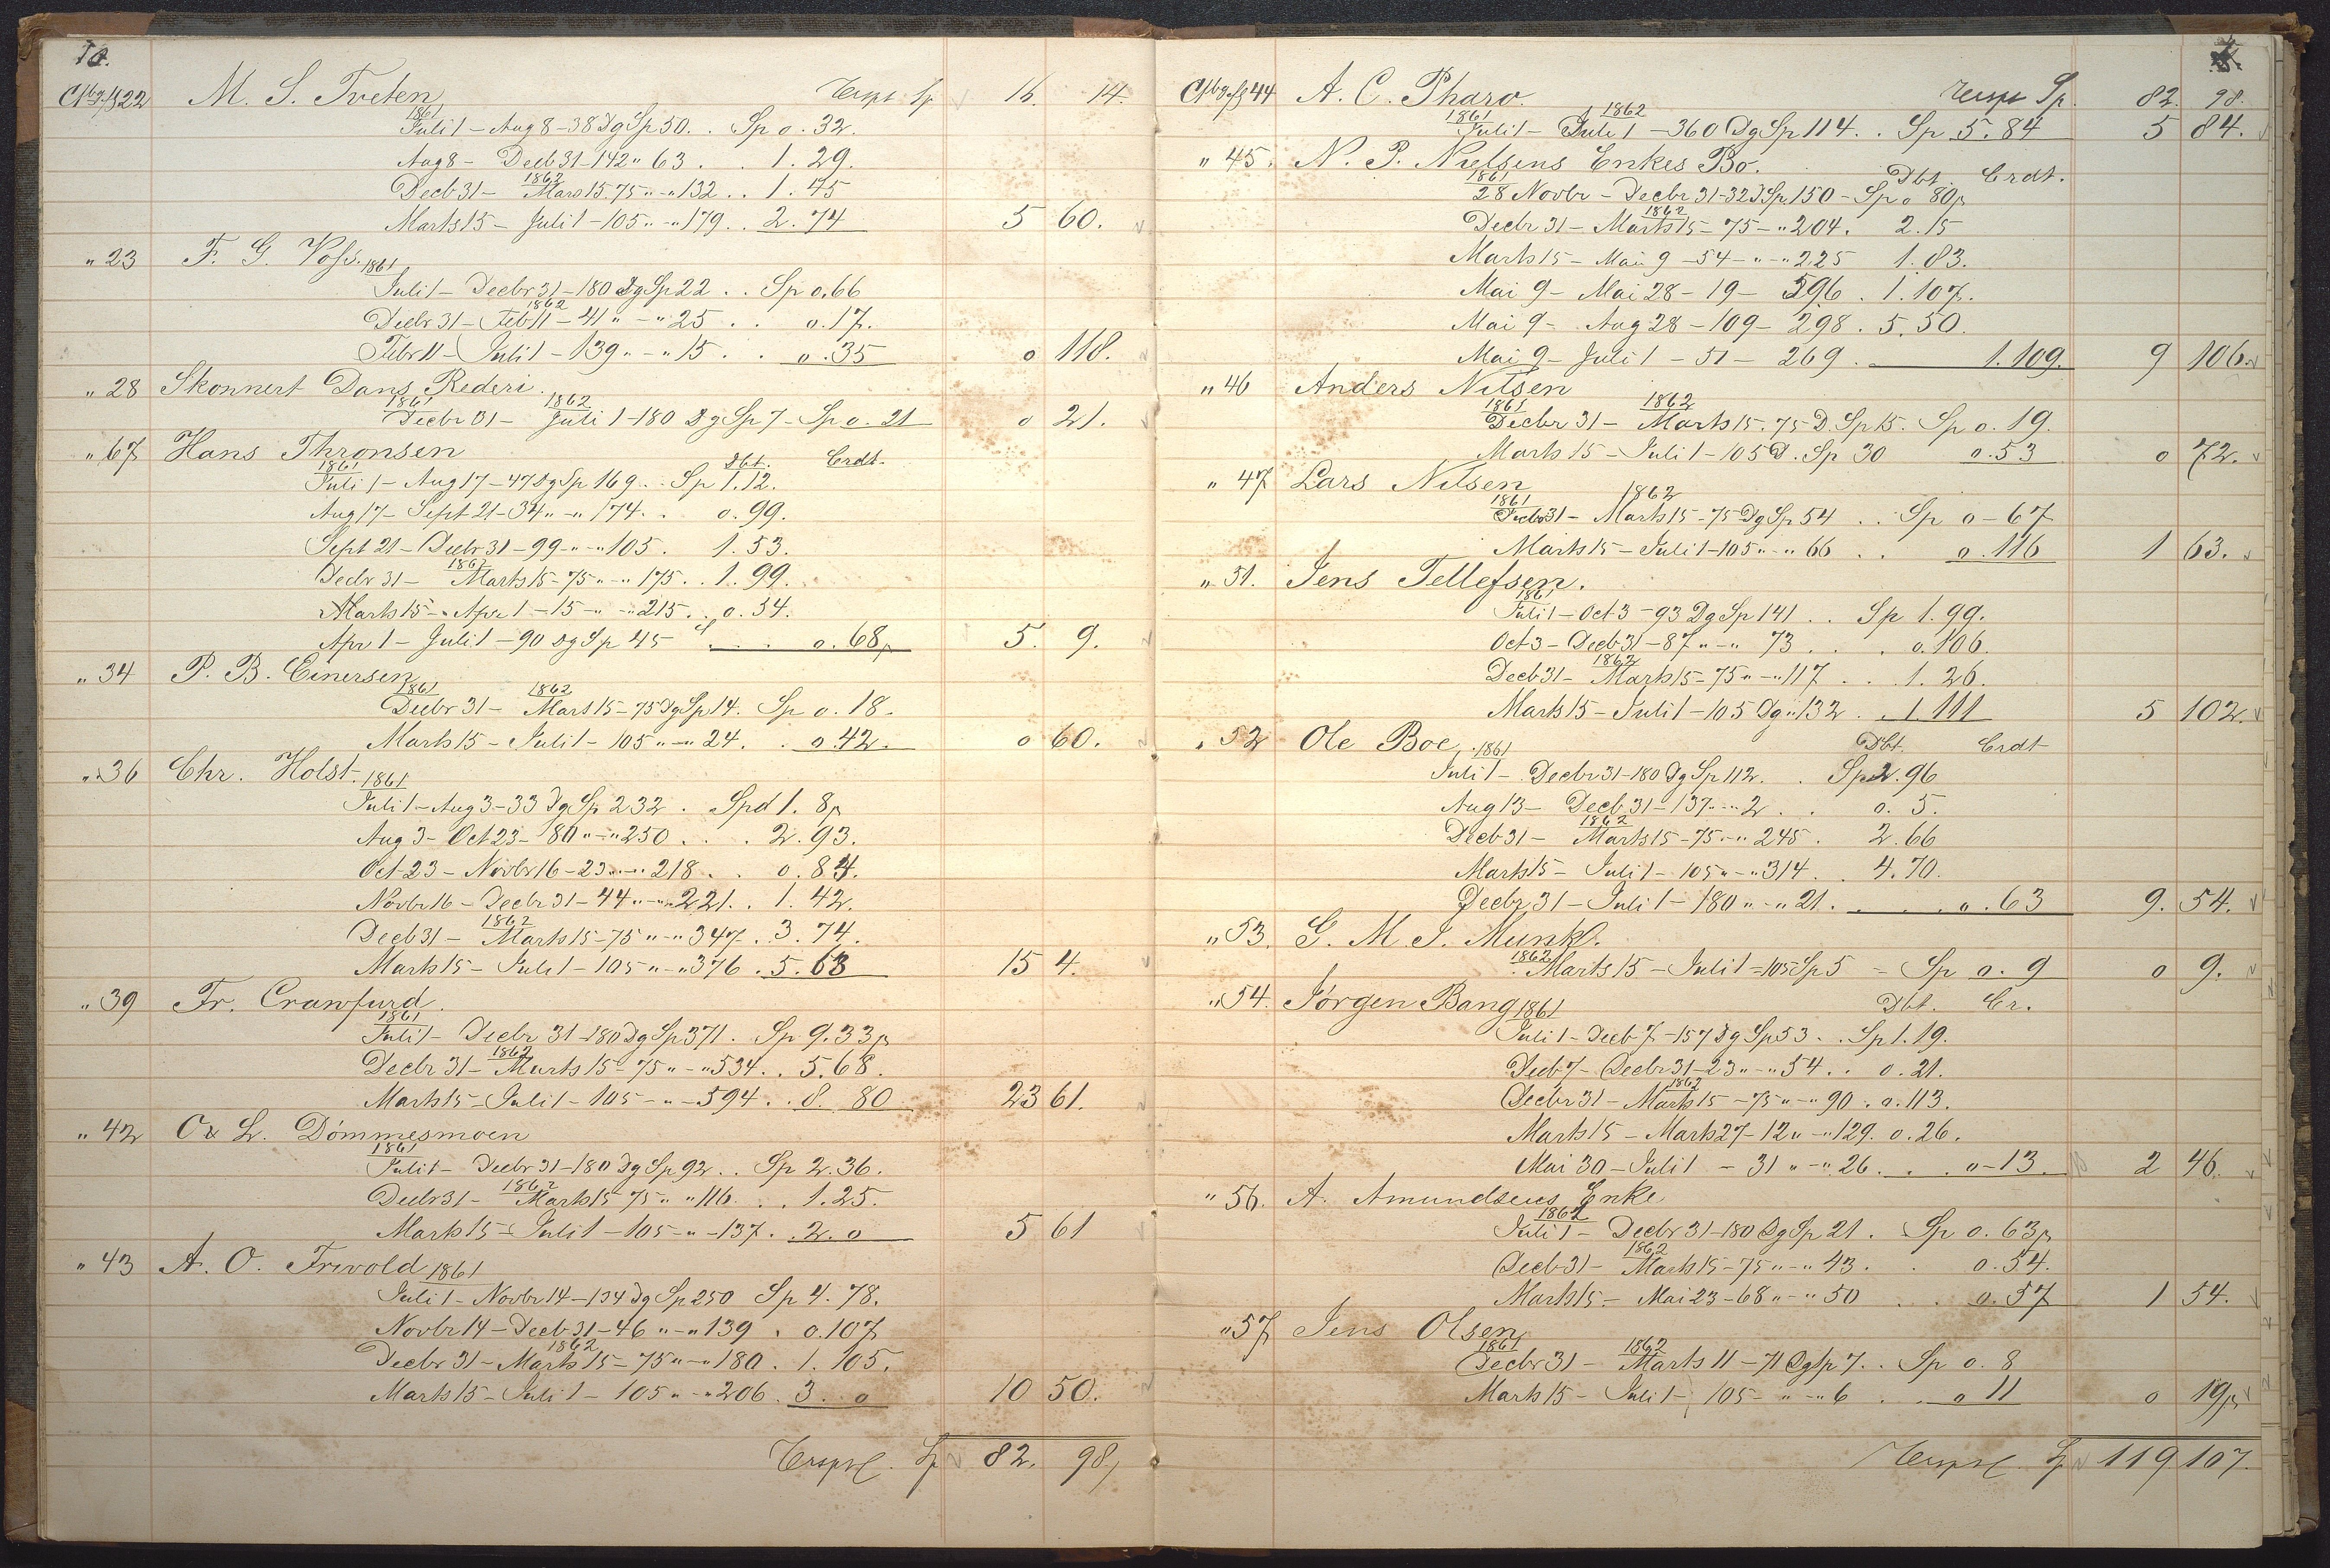 10.
M. S. Tveten Transpt Sp 16. 14.
22
1861
Juli 1 - Aug 8 - 38 Dg Sp 50 . . Sp 0. 32.
Aug 8 - Decb 31 - 142 " 63 . . 1. 29.
1862
Decb 31 - Mars 15. 75 " - " 132 . . 1. 45
Marts 15 - Juli 1 - 105 " - " 179 . . 2. 74 5 60.
" 23 F. G. Voss. 1861
Juli 1 - Decbr 31 - 180 Dg Sp 22 . . Sp 0. 66
1862
Decbr 31 - Feb 11 - 41 " - " 25 . . 0. 17.
Febr 11 - Juli 1 - 139 " - " 15 . . 0. 35 0 118.
" 28 Skonnert Dans Rederi.
1861 1862
Decbr 31 - Juli 1 - 180 Dg Sp 7 - Sp 0. 21 0 21.
" 67 Hans Thronsen
1861 Dbt. Crdt.
Juli 1 - Aug 17 - 47 Dg Sp 169 . . Sp 1. 12.
Aug 17 - Sept 21 - 34 " - " 174 . . 0. 99.
Sept 21 - Decbr 31 - 99 - " - " 105 . 1. 53.
1862
Decbr 31 - Marts 15 - 75 " - " 175 . . 1. 99.
Marts 15 - Apr 1 - 15 - " - " 215 . . 0. 54.
Apr 1 - Juli 1 - 90 Dg Sp 45 . . . 0. 68 5. 9.
" 34 P. B. Einersen
1861 1862
Decbr 31 - Mars 15 - 75 Dg Sp 14. Sp 0. 18.
Marts 15 - Juli 1 - 105 " - " 24. . 0. 42. 0 60.
" 36 Chr. Holst. 1861
Juli 1 - Aug 3 - 33 Dg Sp 232 . Spd 1. 8
Aug 3 - Oct 23 - 80 " - " 250 . . . 2. 93.
Oct 23 - Novbr 16 - 23 " - " 218 . . 0. 84.
Novbr 16 - Decbr 31 - 44 " - " 221 . . 1. 42.
1862
Decb 31 - Marts 15 - 75 " - " 347 . . 3. 74.
Marts 15 - Juli 1 - 105 " - " 376 . 5. 63 15 4.
" 39 Fr. Crawfurd.
1861
Juli 1 - Decbr 31 - 180 Dg Sp 371 . Sp 9. 33
1862
Decbr 31 - Marts 15 - 75 " - " 534 . . 5. 68.
Marts 15 - Juli 1 - 105 - " - 594 . . 8. 80 23 61.
" 42 O & L. Dömmesmoen
1861
Juli 1 - Decbr 31 - 180 Dg Sp 92 . . Sp 2. 36.
1862
Decbr 31 - Marts 15 75 " " 116 . . 1. 25.
Marts 15 - Juli 1 - 105 - " - 137 . . 2. 0 5 61
" 43 A. O. Frivold 1861
Juli 1 - Novbr 14 - 134 Dg Sp 250 Sp 4. 78.
Novbr 14 - Decb 31 - 46 " - " 139 . 0. 107
1862
Decbr 31 - Marts 15 - 75 " - " 180 . 1. 105.
Marts 15 - Juli 1 - 105 " - " 206 . 3. 0 10 50.
Transpt. Sp 82. 98
44 A. C. Pharo. Transpt Sp. 82. 98.
1861 1862
Juli 1 - Juli 1 - 360 Dg Sp 114 . . Sp 5. 84 5 84.
" 45. N. P. Nielsens Enkes Bo.
1861 Dbt. Crdt.
28 Novbr - Decbr 31 - 32 D Sp 150 - Sp 0 80
1862
Decbr 31 - Marts 15 - 75 - " 204 . 2. 15
Marts 15 - Mai 9 - 54 - " - " 225 1. 83.
Mai 9 - Mai 28 - 19 - 596 . 1. 107.
Mai 9 - Aug 28 - 109 - 298 . 5. 50.
Mai 9 - Juli 1 - 51 - 269 . 1. 109. 9 106.
" 46 Anders Nilsen
1861 1862
Decbr 31 - Marts 15. 75 D. Sp 15. Sp 0. 19.
Marts 15 - Juli 1 - 105 D. Sp 30 0. 53 0 72.
" 47 Lars Nilsen
1861 1862
Decbr 31 - Marts 15 - 75 Dg Sp 54 . . Sp 0 - 67
Marts 15 - Juli 1 - 105 " - " 66 . . 0. 116 1 63.
" 51. Jens Tellefsen.
1861
Juli 1 - Oct 3 - 93 Dg Sp 141 . . Sp 1. 99.
Oct 3 - Decb 31 - 87 " - " 73 . . . 0. 106.
1862
Decb 31 - Marts 15 - 75 " - " 117 . . 1. 26.
Marts 15 - Juli 1 - 105 Dg " 132 . . 1 111 5 102.
" 52 Ole Boe. 1861 Dbt. Crdt
Juli 1 - Decbr 31 - 180 Dg Sp 112. . Sp 2. 96
Aug 13 - Decb 31 - 137 " - " 2 . . 0. 5.
1862
Decb 31 - Marts 15 - 75 - " 245 . 2. 66
Marts 15 - Juli 1 - 105 " - " 314 . . 4. 70.
Decbr 31 - Juli 1 - 180 " - " 21 . . . 0. 63 9. 54.
" 53. G. M. J. Munk.
1862
Marts 15 - Juli 1 - 105 Sp 5 - Sp 0. 9 0 9.
" 54. Jörgen Bang 1861 Dbt. Cr.
Juli 1 - Decb 7 - 157 Dg Sp 53 . . Sp 1. 19.
Decb 7 - Decbr 31 - 23 " - " 54 . . 0. 21.
1862
Decbr 31 - Marts 15 - 75 " - " 90 . 0. 113.
Marts 15 - Marts 27 - 12 " - " 129. 0. 26.
Mai 30 - Juli 1 - 31 " - " 26 . . . 0 - 13 2 46.
" 56. A. Amundsens Enke
1862
Juli 1 - Decbr 31 - 180 Dg Sp 21 . Sp 0. 63
1862
Decb 31 - Marts 15 - 75 " - " 43 . . 0. 54.
Marts 15 - Mai 23 - 68 " - " 50 . . 0. 57 1 54.
" 57 Jens Olsen
1861 1862
Decbr 31 - Marts 11 - 71 Dg Sp 7 . . Sp 0. 8
Marts 15 - Juli 1 - 105 - " - " 6 . . 0 11 0 19
Transpt. Sp 119 107.